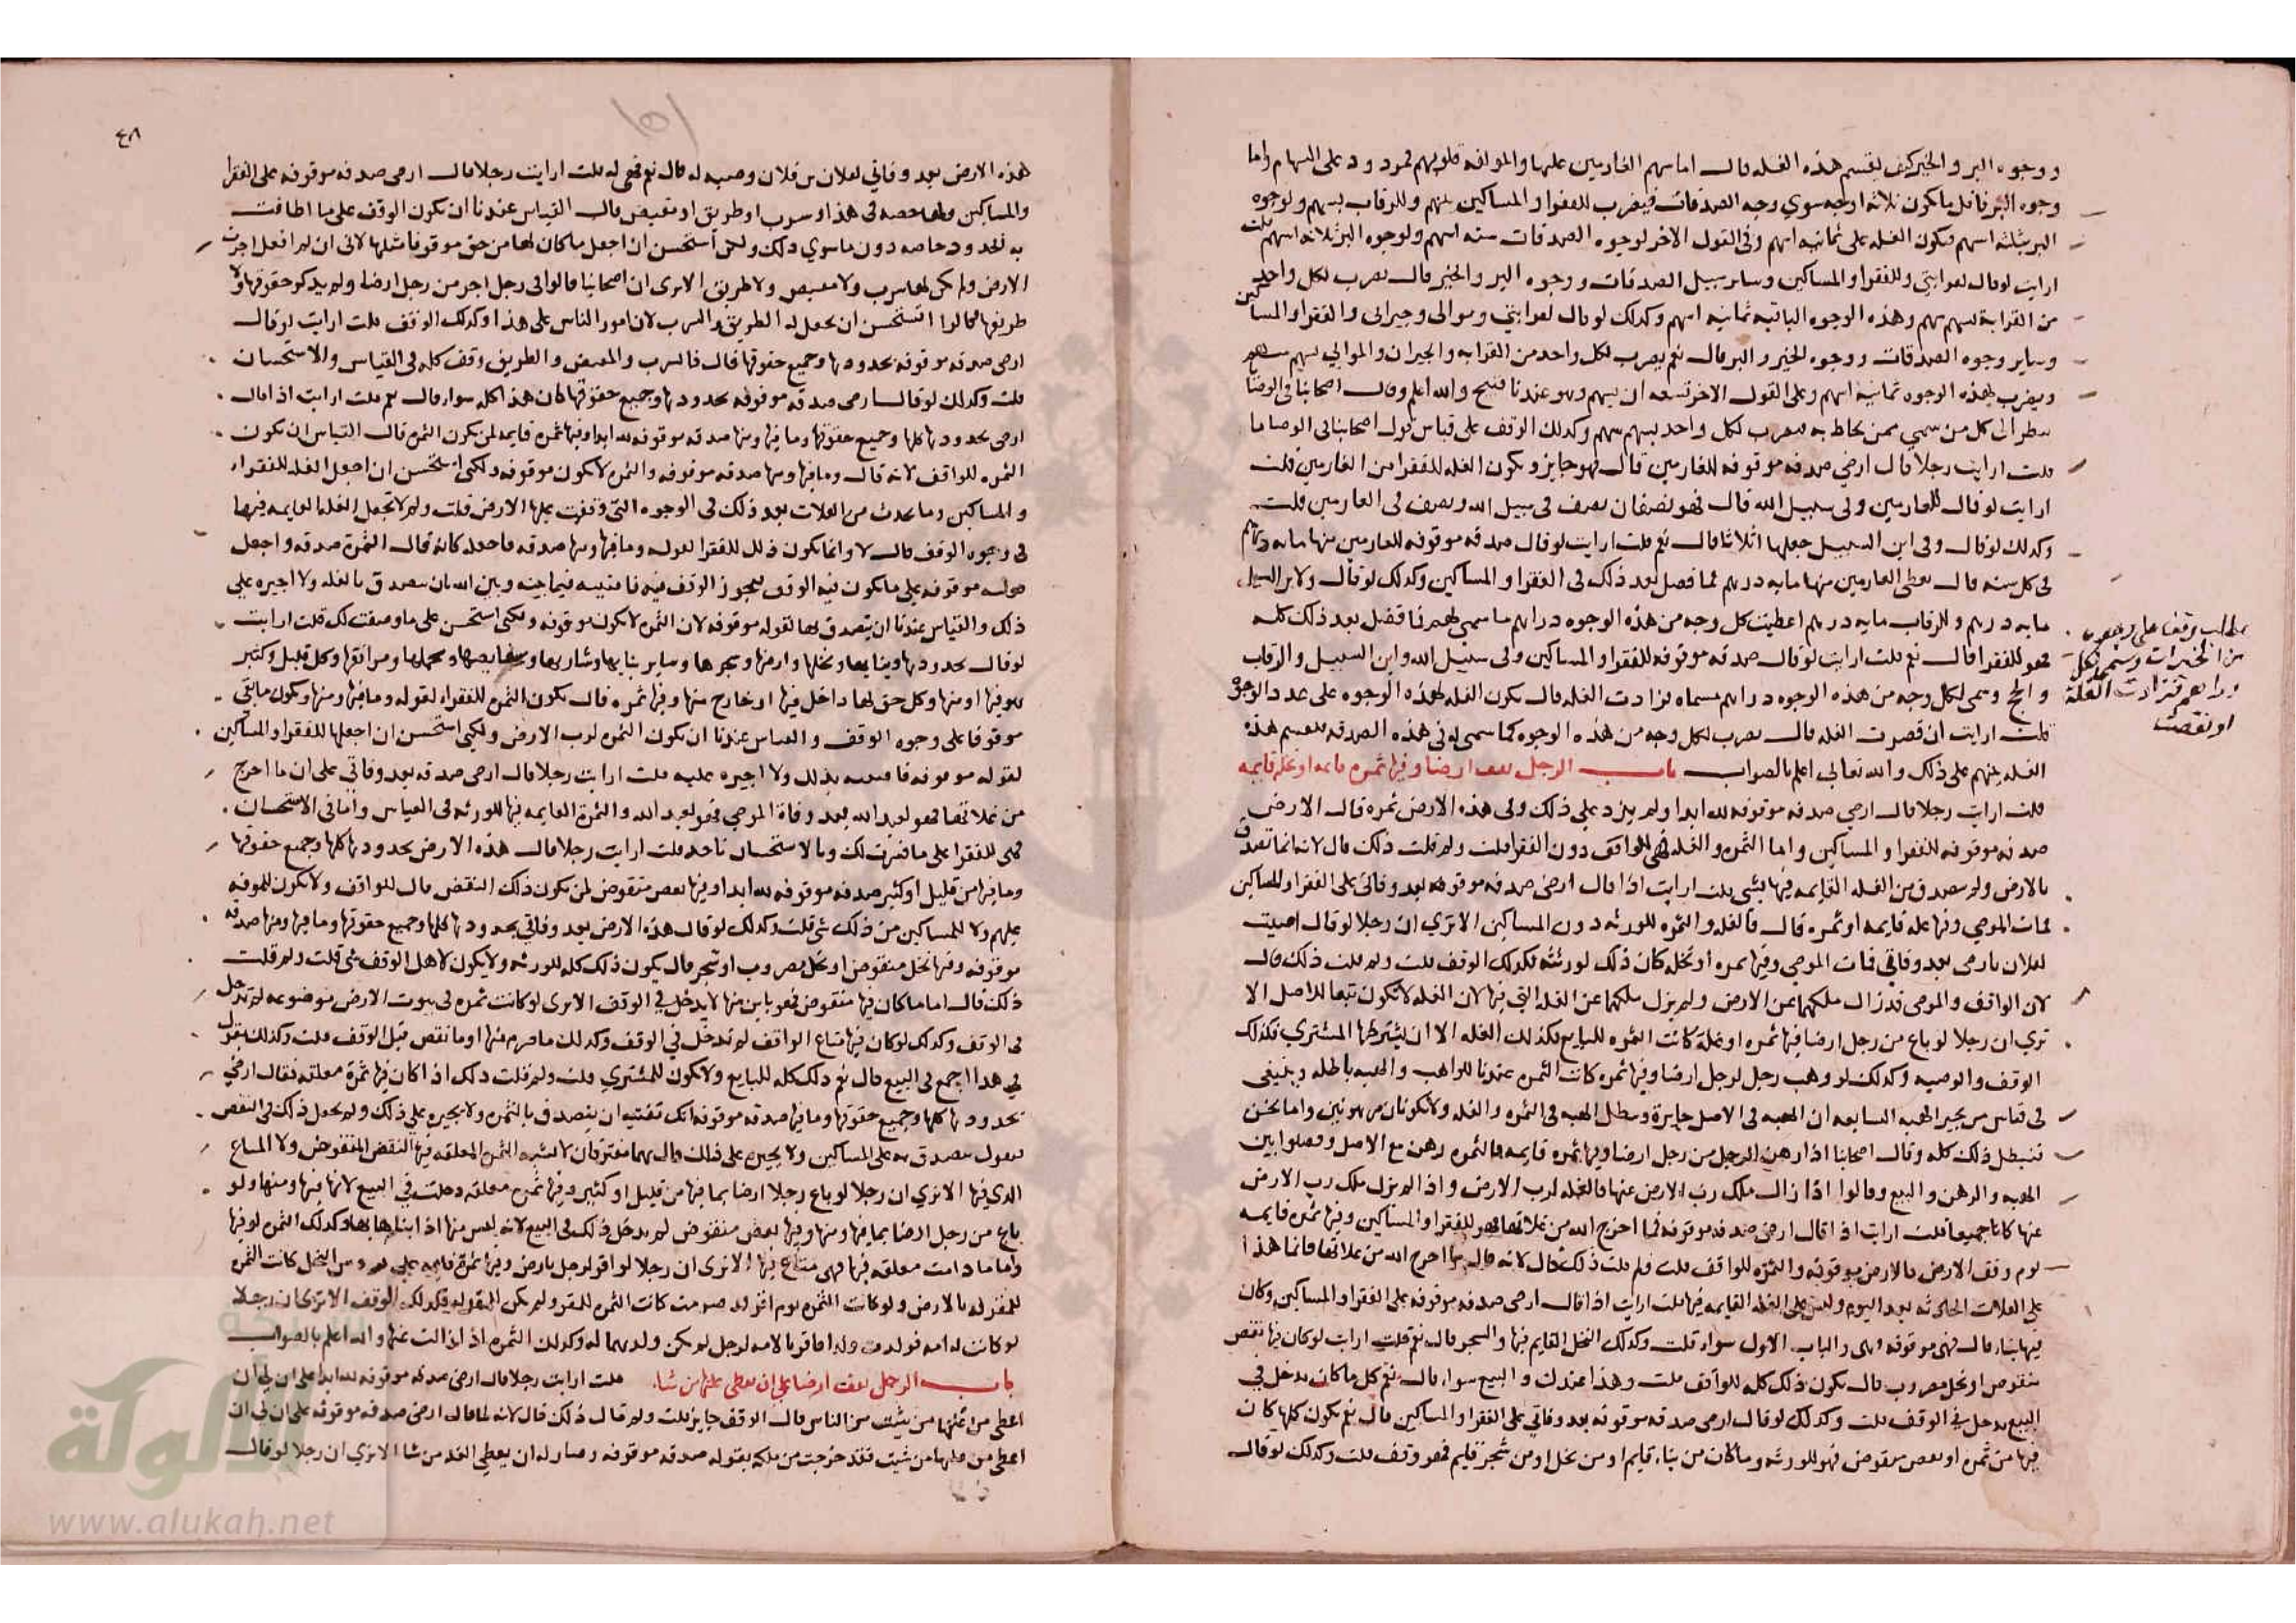 ووجوه البر والخير كيف يقسم هذه الغله قال اما سهم الغارمين عليها والمولفة قلوبهم فمردود على السهام واما
وجوه البر فاقل ما يكون ثلاثه اوجه سوي وجه الصدقات فيضرب للفقرا و المساكين بسهم وللرقاب بسهم ولوجوه
البر بثلثه اسهم فتكون الغله على ثمانيه اسهم وفي القول الاخر لوجوه الصدقات سته اسهم ولوجوه البر ثلاثه اسهم قلت
ارايت لو قال لقرابتي وللفقرا و المساكين وساير سبيل الصدقات ووجوه البر والخير قال يضرب لكل واحد
من القرابة بسهم سهم وهذه الوجوه الباقيه ثمانيه اسهم وكذلك لو قال لقرابتي وموالى وجيرانى والفقرا والمساكين
وساير وجوه الصدقات ووجوه الخير و البر قال نعم يضرب لكل واحد من القرابه والجيران والموالي بسهم سهم
ويضرب لهذه الوجوه ثمانيه اسهم وعلى القول الاخر تسعه اسهم وهو عندنا قبيح والله اعلم وقال اصحابنا في الوصايا
ينظر الى كل من سمي ممن يحاط به فيضرب لكل واحد بسهم سهم وكذلك الوقف على قياس قول اصحابنا في الوصايا
قلت ارايت رجلا قال ارضي صدقه موقوفه للغارمين قال فهو جايز و يكون الغله للفقرا من الغارمين قلت
ارايت لو قال للغارمين وفى سبيل الله قال فهو نصفان نصف فى سبيل الله ونصف فى الغارمين قلت
وكذلك لو قال وفى ابن السبيل جعلها اثلاثا قال نعم قلت ارايت لو قال صدقه موقوفه للغارمين منها مايه درهم
فى كل سنه قال يعطى الغارمين منها مايه درهم فما فضل بعد ذلك فى الفقرا و المساكين وكذلك لو قال ولابن السبيل
مايه درهم وللرقاب مايه درهم اعطيت كل وجه من هذه الوجوه دراهم ما سمي لهم فما فضل بعد ذلك كله
فهو للفقرا قال نعم قلت ارايت لو قال صدقه موقوفه للفقرا و المساكين وفى سبيل الله وابن السبيل والرقاب
و الحج وسمى لكل وجه من هذه الوجوه دراهم مسماه فزادت الغله قال يكون الغله لهذه الوجوه على عدد الوجوه
قلت ارايت ان قصرت الغله قال يضرب لكل وجه من هذه الوجوه كما سمى له في هذه الصدقه فتقسم هذه
الغله بينهم على ذلك والله تعالى اعلم بالصواب باب الرجل يقف ارضا وفيها ثمره قايمه او نخله قايمه
قلت ارايت رجلا قال ارضي صدقه موقوفه لله ابدا ولم يزد على ذلك وفى هذه الارض ثمره قال الارض
صدقه موقوفه للفقرا و المساكين واما الثمره والغله فهي للواقف دون الفقرا قلت ولم قلت ذلك قال لانه انما تصدق
بالارض ولم يتصدق من الغله القايمه فيها بشي قلت ارايت اذا قال ارضي صدقه موقوفه بعد وفاتى على الفقرا والمساكين
فمات الموصي وفيها غله قايمه او ثمره قال فالغله و الثمره للورثه دون المساكين الا تري ان رجلا لو قال اوصيت
لفلان بارضي بعد وفاتي فمات الموصي وفيها ثمره او نخله كان ذلك لورثته فكذلك الوقف قلت ولم قلت ذلك قال
لان الواقف والموصى قد زال ملكهما عن الارض ولم يزل ملكهما عن الغله التي فيها لان الغله لا تكون تبعا للاصل الا
تري ان رجلا لو باع من رجل ارضا فيها ثمره او غلة كانت الثمره للبايع فكذلك الغله الا ان يشترطها المشتري فكذلك
الوقف والوصيه وكذلك لو وهب رجل لرجل ارضا وفيها ثمره كانت الثمره عندنا للواهب والهبه باطله وينبغي
فى قياس من يجيز الهبه السابعه ان الهبه فى الاصل جايزة وتبطل الهبه فى الثمره والغله ولا تكونان مرهونتين واما نحن
فنبطل ذلك كله وقال اصحابنا اذا رهن الرجل من رجل ارضا وفيها ثمره قايمه فالثمره رهن مع الاصل وفصلوا بين
الهبه والرهن و البيع وقالوا اذا زال ملك رب الارض عنها فالغله لرب الارض و اذا لم يزل ملك رب الارض
عنها كانا جميعا قلت ارايت اذا قال ارضى صدقه موقوفه فما اخرج الله من غلاتها فهو للفقرا والمساكين وفيها ثمره قايمه
يوم وقف الارض فالارض موقوفه والثمره للواقف قلت ولم قلت ذلك قال لانه قال ما اخرج الله من غلاتها فانما هذا
على الغلات الحادثه بعد اليوم وليس على الغله القايمه فيها قلت ارايت اذا قال ارضى صدقه موقوفه على الفقرا و المساكين وكان
فيها بناء قال فهى موقوفه وهى والباب الاول سواء قلت وكذلك النخل القايم فيها والشجر قال نعم قلت ارايت لو كان فيها نقض
منقوض او نخل مضروب قال يكون ذلك كله للواقف قلت وهذا عندك والبيع سواء قال نعم كل ما كان يدخل في
البيع يدخل في الوقف قلت وكذلك لو قال ارضى صدقه موقوفه بعد وفاتي على الفقرا و المساكين قال نعم يكون كلها كان
فيها من ثمره او نقض منقوض فهو للورثه وما كان من بناء قايم او من نخل او من شجر قايم فهو وقف قلت وكذلك لو قال
مطلب وقف على وجوه
من الخيرات وسمى لكل
دراهم فزادت الغلة
او نقصت
٤٨
هذه الارض بعد وفاتي لفلان بن فلان وصيه له قال نعم فهى له قلت ارايت رجلا قال ارضى صدقه موقوفه على الفقرا
والمساكين ولها حصه فى هذا او سرب او طريق او مغيض قال القياس عندنا ان يكون الوقف على ما اطافت
به الحدود خاصه دون ما سوي ذلك ولكن استحسن ان اجعل ما كان لها من حق موقوفا مثلها لانى ان لم افعل اجرت
الارض ولم يكن لها سرب ولا مغيض ولا طريق الا ترى ان اصحابنا قالوا فى رجل اجر من رجل ارضا ولم يذكر حقوقها ولا
طريقها قالوا نستحسن ان يجعل له الطريق و السرب لان امور الناس على هذا وكذلك الوقف قلت ارايت لو قال
ارضى صدقه موقوفه بحدودها وجميع حقوقها قال فالسرب والمغيض والطريق وقف كله فى القياس والاستحسان
قلت وكذلك لو قال ارضى صدقه موقوفه بحدودها وجميع حقوقها كان هذا كله سواء قال نعم قلت ارايت اذا قال
ارضى بحدودها كلها وجميع حقوقها وما فيها ومنها صدقه موقوفه لله ابدا وفيها ثمره قايمه لمن يكون الثمره قال القياس ان يكون
الثمره للواقف لانه قال وما فيها ومنها صدقه موقوفه والثمره لا يكون موقوفه ولكني استحسن ان اجعل الغله للفقراء
و المساكين وما يحدث من الغلات بعد ذلك فى الوجوه التي وقفت عليها الارض قلت ولم لا تجعل الغله القايمه فيها
فى وجوه الوقف قال لا وانما يكون ذلك للفقرا لقوله وما فيها ومنها صدقه فاجعله كانه قال الثمرة صدقه و اجعل
قوله موقوفه على ما يكون فيه الوقف ويجوز الوقف فيه فافتيه فيما بينه وبين الله ان يتصدق بالغله ولا اجبره على
ذلك والقياس عندنا ان يتصدق بها لقوله موقوفه لان الثمره لا يكون موقوفه ولكنى استحسن على ما وصفت لك قلت ارايت
لو قال بحدودها وبنايها ونخلها وارضها وشجرها وساير بنايها ومشاربها ومغايضها ومحملها ومرافقها وكل قليل وكثير
هو فيها او منها وكل حق لها داخل فيها او خارج منها وفيها ثمره قال يكون الثمره للفقراء لقوله وما فيها ومنها ويكون ما بقي
موقوفا على وجوه الوقف و القياس عندنا ان يكون الثمره لرب الارض ولكني استحسن ان اجعلها للفقرا و المساكين
لقوله موقوفه فافتيه بذلك ولا اجبره عليه قلت ارايت رجلا قال ارضى صدقه بعد وفاتي على ان ما اخرج
من غلاتها فهو لعبد الله بعد وفاة الموصي فهو لعبد الله و الثمرة القايمه فيها للورثه فى القياس واما فى الاستحسان
فهى للفقرا على ما فسرت لك وبالاستحسان ناخذ قلت ارايت رجلا قال هذه الارض بحدودها كلها وجميع حقوقها
وما فيها من قليل او كثير صدقه موقوفه لله ابدا وفيها نقض منقوض لمن يكون ذلك النقض قال للواقف ولا يكون للموقوفه
عليهم ولا للمساكين من ذلك شى قلت وكذلك لو قال هذه الارض بعد وفاتي بحدودها كلها وجميع حقوقها وما فيها ومنها صدقه
موقوفه وفيها نخل منقوض او نخل مضروب او شجر قال يكون ذلك كله للورثه ولا يكون لاهل الوقف شى قلت ولم قلت
ذلك قال اما ما كان فيها منقوض فهو باين منها لا يدخل في الوقف الا ترى لو كانت ثمره فى بيوت الارض موضوعه لم تدخل
فى الوقف وكذلك لو كان فيها متاع الواقف لم تدخل في الوقف وكذلك ما صرم منها او ما نقض قبل الوقف قلت وكذلك نقول
في هذا اجمع فى البيع قال نعم ذلك كله للبايع ولا يكون للمشتري قلت ولم قلت ذلك اذا كان فيها ثمرة معلقه فقال ارضي
بحدودها كلها وجميع حقوقها وما فيها صدقه موقوفه انك تفتيه ان يتصدق بالثمره ولا يجبره على ذلك ولم يجعل ذلك فى النقض
فيقول يتصدق به على المساكين ولا يجبره على ذلك قال هما مفترقان لا يشبه الثمره المعلقه فيها النقض المنقوض ولا المتاع
الذى فيها الا تري ان رجلا لو باع رجلا ارضا بما فيها من قليل او كثير وفيها ثمره معلقه دخلت في البيع لانها فيها ومنها ولو
باع من رجل ارضا بما فيها ومنها وفيها نقض منقوض لم يدخل ذلك فى البيع لانه ليس منها اذا ابتاعها بها وكذلك الثمره لو فيها
واما ما دامت معلقه فيها فهى متاع فيها الا ترى ان رجلا لو اقر لرجل بارض وفيها ثمرة قايمه على من النخل كانت الثمره
للمقر له بالارض ولو كانت الثمره يوم اقر قد صرمت كانت الثمره للمقر ولم يكن للمقر له فكذلك الوقف الا ترى ان رجلا
لو كانت له امه فولدت ولدا فاقر بالامه لرجل لم يكن ولدها له وكذلك الثمره اذا زالت عنها والله اعلم بالصواب
باب الرجل يقف ارضا على ان يعطى غلتها من شا. قلت ارايت رجلا قال ارضى صدقه موقوفه لله ابدا على ان لي ان
اعطى من غلتها من شيت من الناس قال الوقف جايز قلت ولم قال ذلك قال لانه لما قال ارضى صدقه موقوفه على ان لي ان
اعطى من غلتها من شيت فقد خرجت من ملكه بقوله صدقه موقوفه وصار له ان يعطي الغله من شا الا تري ان رجلا لو قال
الألوكة
www.alukah.net